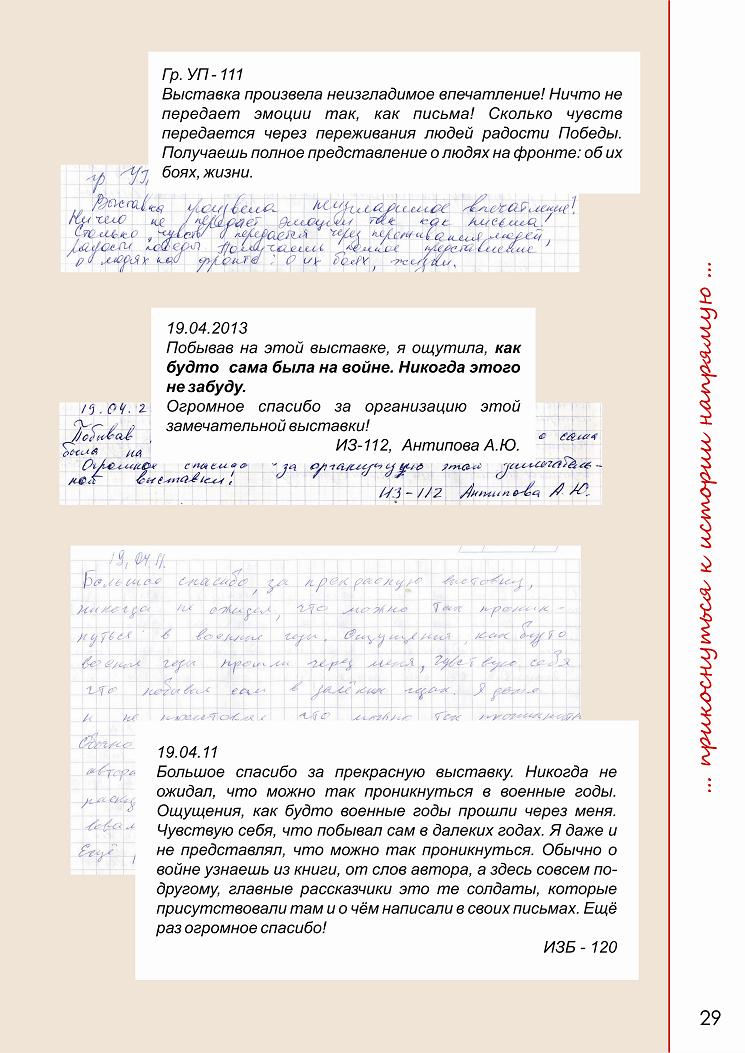 Гр. УП - 111
Выставка произвела неизгладимое впечатление! Ничто не
передает эмоции так, как письма! Сколько чувств
передается через переживания людей радости Победы.
Получаешь полное представление о людях на фронте: об их
боях, жизни.
гр УП,
Выставка произвела неизгладимое впечатление!
Ничего не передаёт эмоции так как письма!
Столько чувств передаётся через переживания людей,
радости победы. Получаешь полное представление
о людях на фронте: о их боях, жизни.
19.04.2013
Побывав на этой выставке, я ощутила, как
будто сама была на войне. Никогда этого
не забуду.
Огромное спасибо за организацию этой
замечательной выставки!
ИЗ-112, Антипова А.Ю.
19.04.2
Побывав сама
была на
Огромное спасибо за организацию этой замечатель-
ной выставки!
ИЗ-112 Антипова А.Ю.
19.04.11.
Большое спасибо, за прекрасную выставку,
никогда не ожидал, что можно так проник-
нуться в военные годы. Ощущения, как будто
военные годы прошли через меня, Чувствую себя
что побывал сам в далёких годах. Я даже
и не представлял что можно так проникнуться
Обычно
автора
расск
вовал
Ещё
19.04.11
Большое спасибо за прекрасную выставку. Никогда не
ожидал, что можно так проникнуться в военные годы.
Ощущения, как будто военные годы прошли через меня.
Чувствую себя, что побывал сам в далеких годах. Я даже и
не представлял, что можно так проникнуться. Обычно о
войне узнаешь из книги, от слов автора, а здесь совсем по-
другому, главные рассказчики это те солдаты, которые
присутствовали там и о чём написали в своих письмах. Ещё
раз огромное спасибо!
ИЗБ - 120
... прикоснуться к истории напрямую ...
29